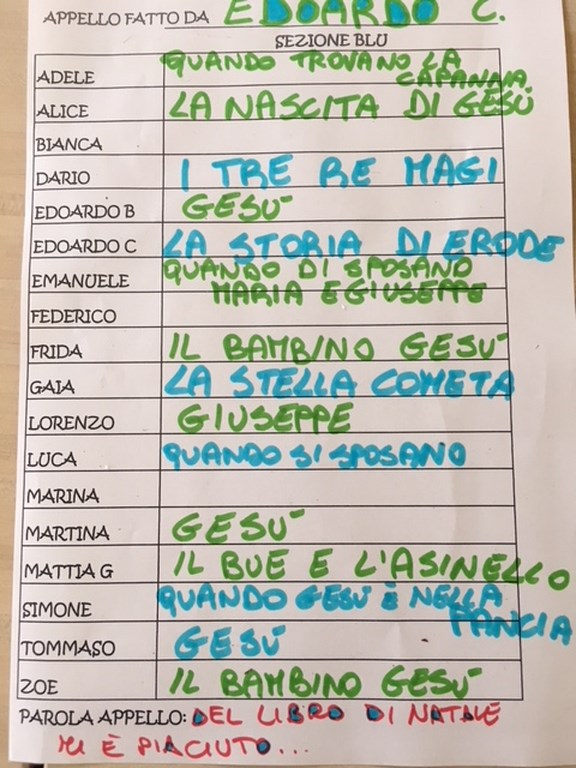 APPELLO FATTO DA EDOARDO C.
SEZIONE BLU
ADELE QUANDO TROVANO LA
CAPANNA
ALICE LA NASCITA DI GESÙ
BIANCA
DARIO I TRE RE MAGI
EDOARDO B GESU'
EDOARDO C LA STORIA DI ERODE
EMANUELE QUANDO DI SPOSANO
MARIA E GIUSEPPE
FEDERICO
FRIDA IL BAMBINO GESU'
GAIA LA STELLA COMETA
LORENZO GIUSEPPE
LUCA QUANDO SI SPOSANO
MARINA
MARTINA GESU'
MATTIA G IL BUE E L'ASINELLO
SIMONE QUANDO GESÙ È NELLA
PANCIA
TOMMASO GESÙ
ZOE IL BAMBINO GESU'
PAROLA APPELLO: DEL LIBRO DI NATALE
MI È PIACIUTO...